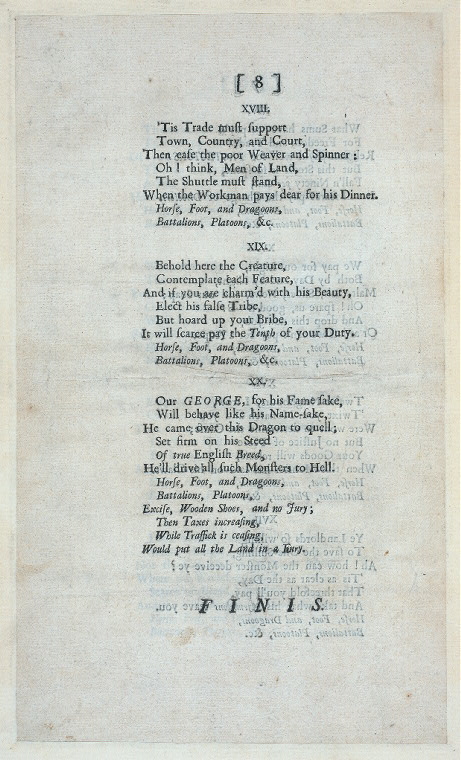 [ 8 ]
XVIII.
'Tis Trade must support
Town, Country, and Court,
Then ease the poor Weaver and Spinner;
Oh! think, Men of Land,
The Shuttle must stand,
When the Workman pays dear for his Dinner.
Horse, Foot, and Dragoons,
Battalions, Platoons, &c.
XIX.
Behold here the Creature,
Contemplate each Feature,
And if you are charm'd with his Beauty,
Elect his false Tribe,
But hoard up your Bribe,
It will scarce pay the Tenth of your Duty.
Horse, Foot, and Dragoons,
Battalions, Platoons, &c.
XX.
Our GEORGE, for his Fame sake,
Will behave like his Name-sake,
He came over this Dragon to quell;
Set firm on his Steed
Of true English Breed,
He'll drive all such Monsters to Hell.
Horse, Foot, and Dragoons,
Battalions, Platoons,
Excise, Wooden Shoes, and no Jury;
Then Taxes increasing,
While Traffick is ceasing,
Would put all the Land in a Fury.
FINIS.